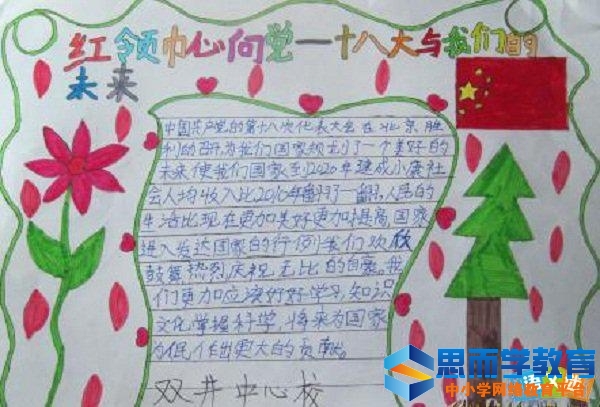 红领巾心向党一十八大与我们的
未来
中国共产党的第十八次代表大会在北京胜
利的召开,为我们国家规划了一个美好的
未来使我们国家到2020年建成小康社
会人均收入比2010年翻了一翻,人民的
生活比现在更加美好更加提高国家
进入发达国家的行列我们欢欣
鼓舞热烈庆祝无比的自豪,我
们更加应该好好学习,知识
文化掌握科学,将来为国家
为作出更大的贡献。
双井中心校
思而学教育
中小学网络教育平台